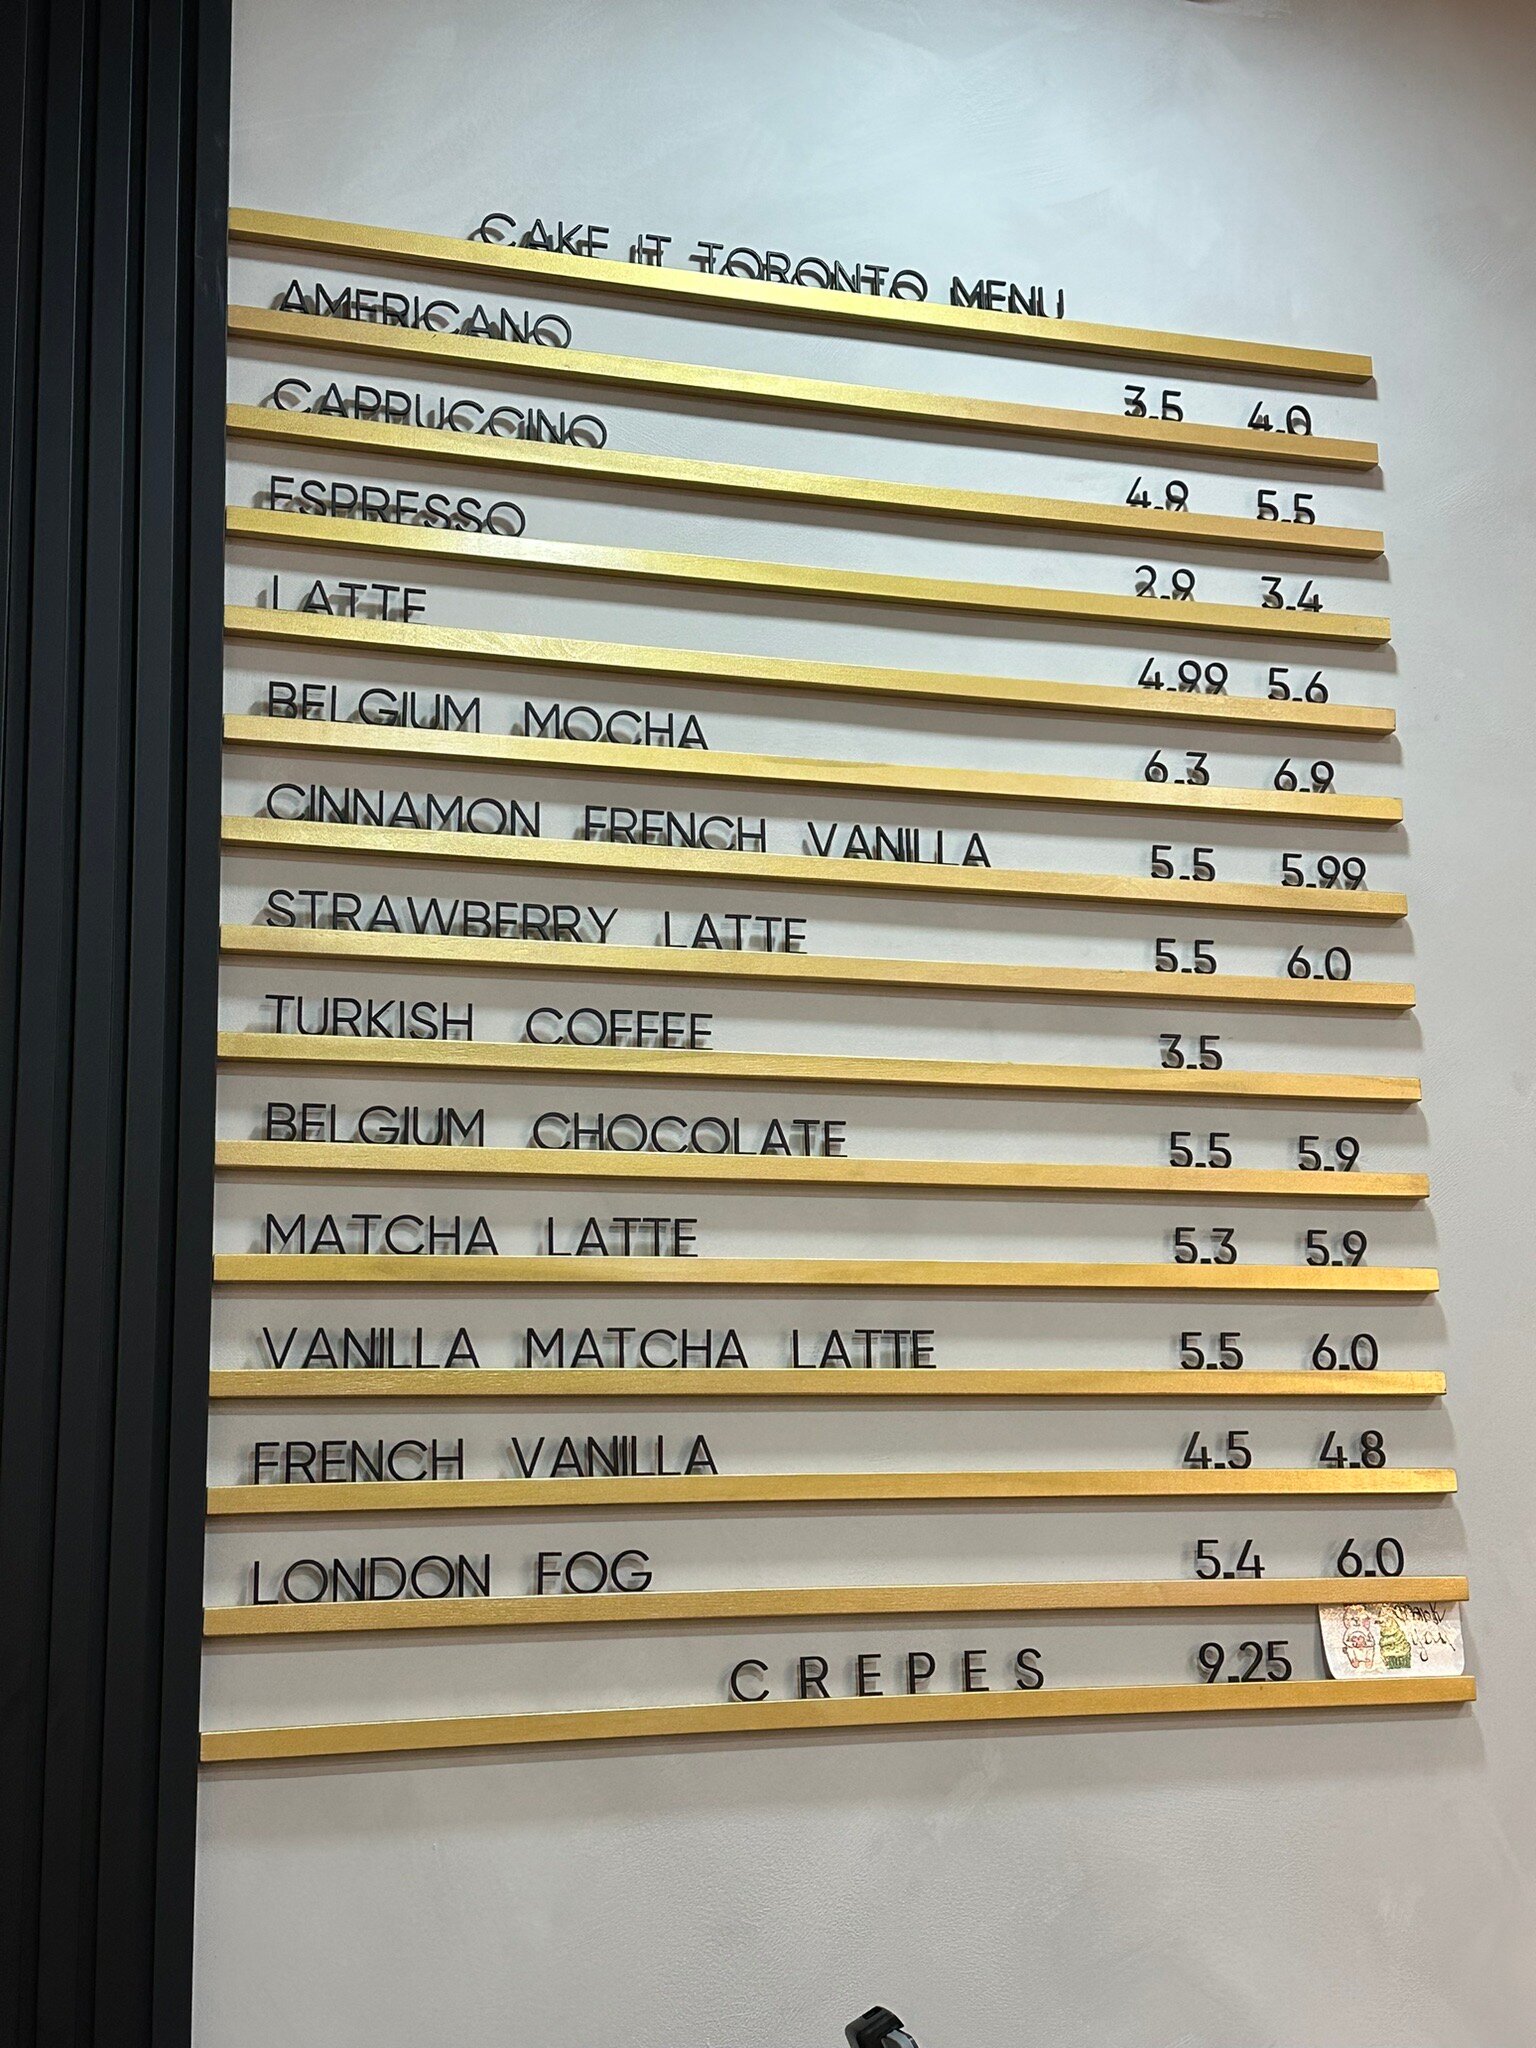 CAKE IT TORONTO MENU
AMERICANO 3.5 4.0
CAPPUCCINO 4.9 5.5
ESPRESSO 2.9 3.4
LATTE 4.99 5.6
BELGIUM MOCHA 6.3 6.9
CINNAMON FRENCH VANILLA 5.5 5.99
STRAWBERRY LATTE 5.5 6.0
TURKISH COFFEE 3.5
BELGIUM CHOCOLATE 5.5 5.9
MATCHA LATTE 5.3 5.9
VANILLA MATCHA LATTE 5.5 6.0
FRENCH VANILLA 4.5 4.8
LONDON FOG 5.4 6.0
CREPES 9.25
Thank
you